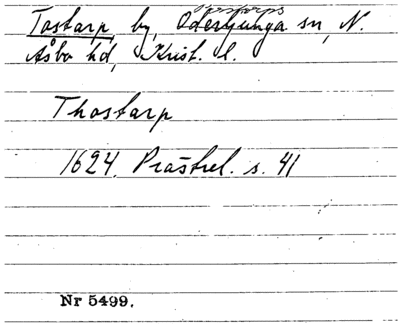 Tostarp, by, Oderljunga sn, N.
Åsbo hd, Krist. l.
Thostarp
1624. Prästrel. s. 41
Nr 5499.